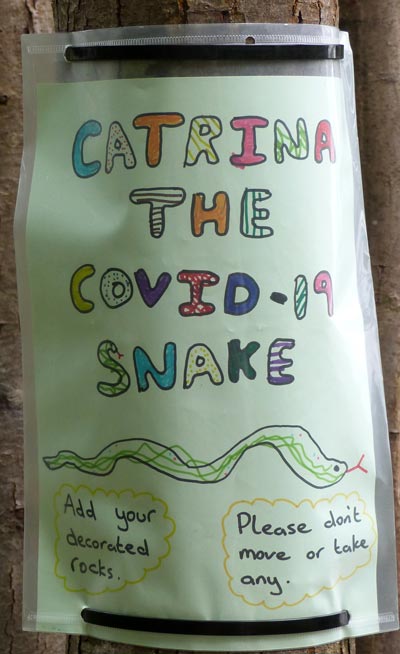 CATRINA
THE
COVID-19
SNAKE
Add your
decorated
rocks.
Please don't
move or take
any.